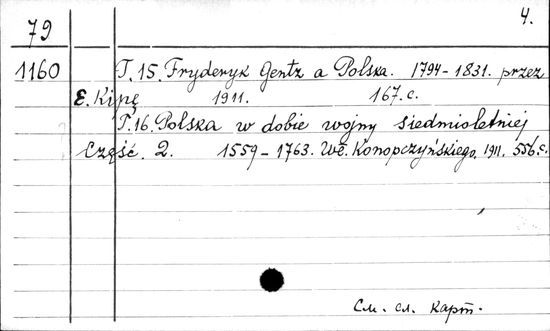 4.
79
1160 T. 15. Fryderyk Gentz a Polska. 1794-1831. przez
E. Kipę 1911. 167. c.
T. 16. Polska w dobie wojny siedmioletniej
Część. 2. 1559-1763. Wł. Konopczyńskiego. 1911. 556. c.
См. сл. карт.